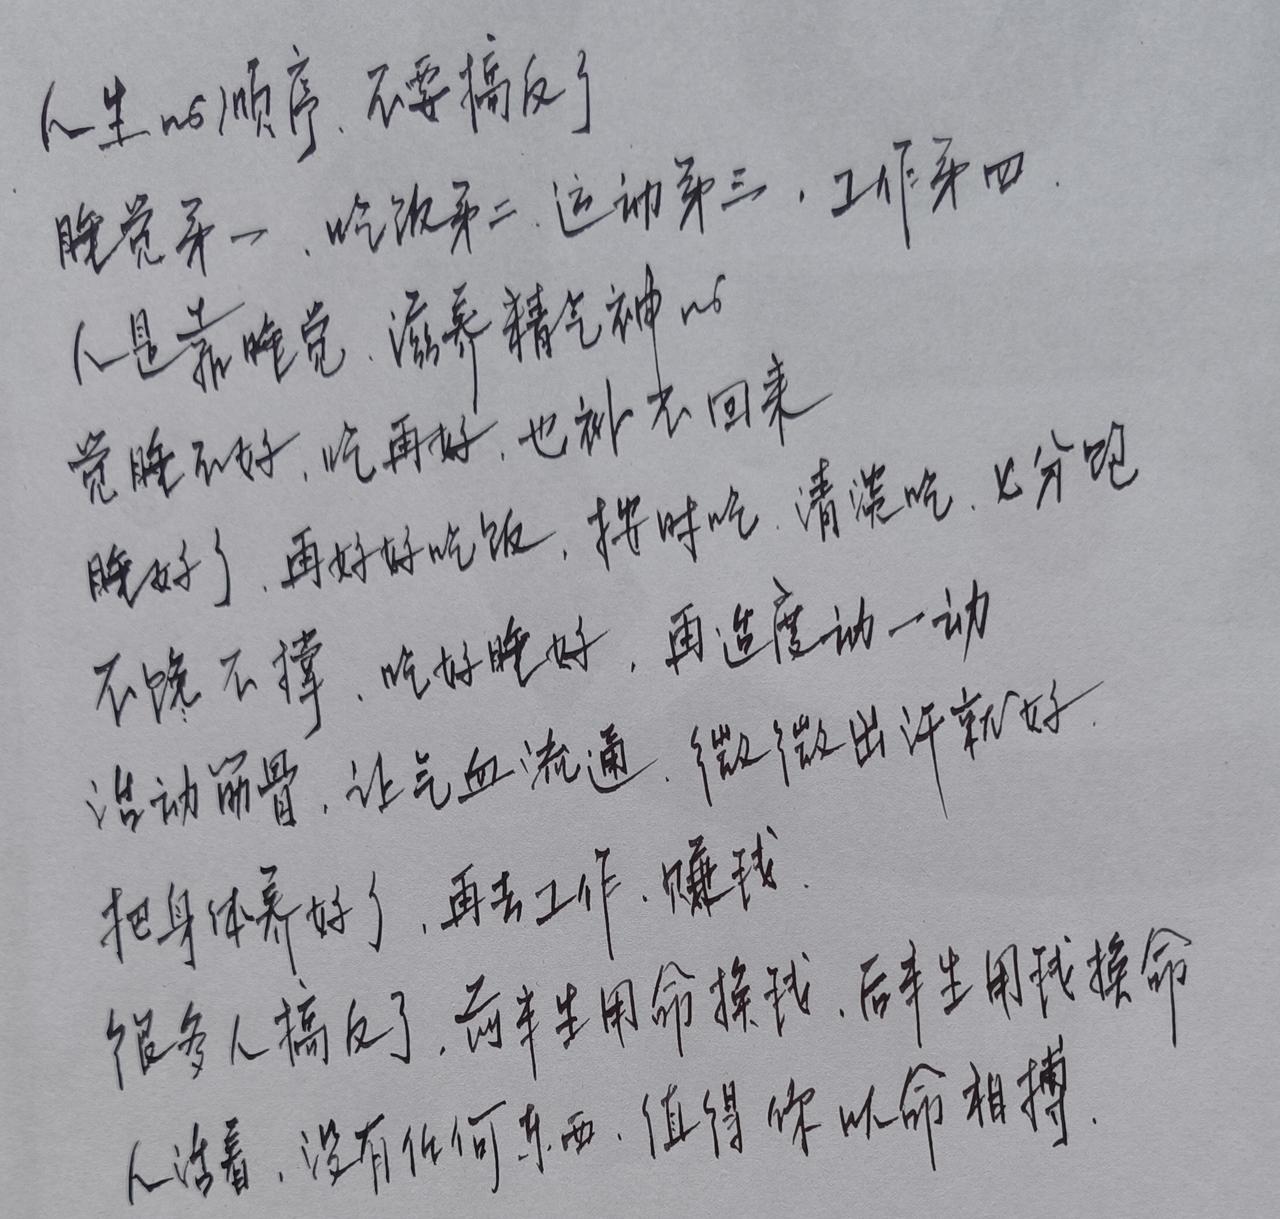 人生的顺序、不要搞反了
睡觉第一、吃饭第二、运动第三、工作第四.
人是靠睡觉、滋养精气神的
觉睡不好、吃再好、也补不回来
睡好了、再好好吃饭、按时吃、清淡吃、七分饱
不馋不撑、吃好睡好、再适度动一动
活动筋骨、让气血流通、微微出汗就好.
把身体养好了、再去工作、赚钱.
很多人搞反了、前半生用命换钱、后半生用钱换命
人活着、没有任何东西、值得你以命相搏.